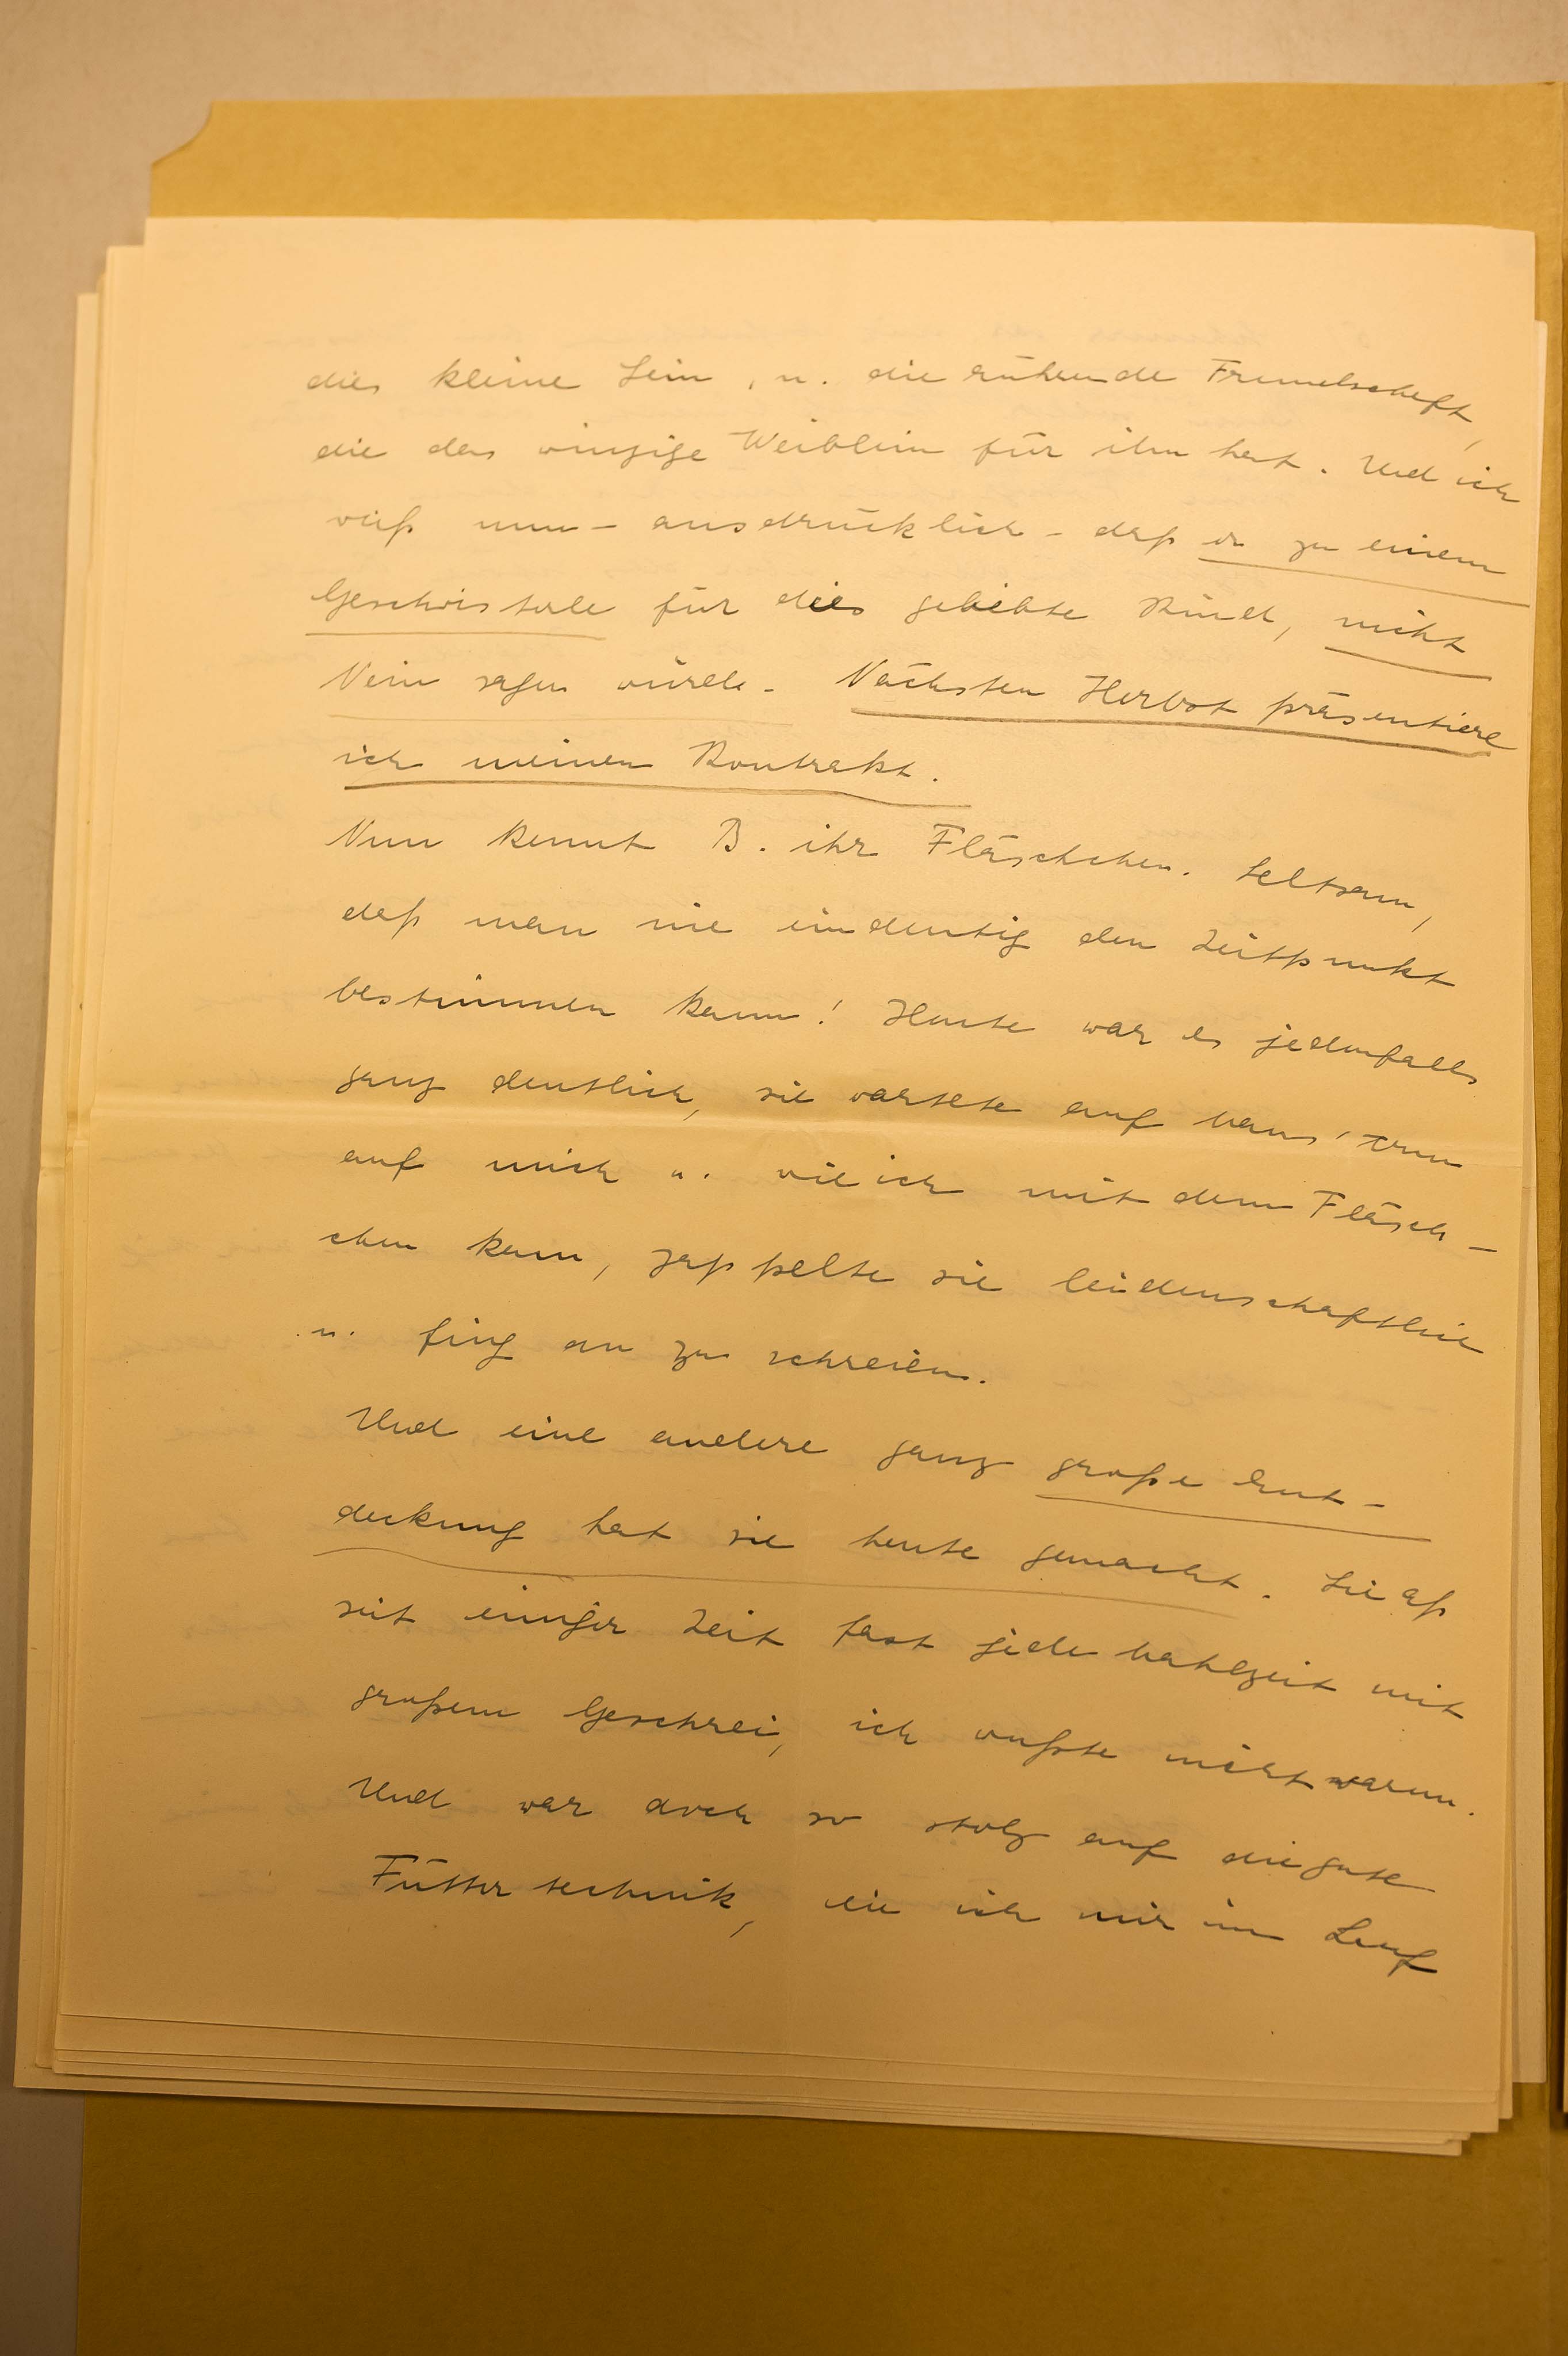 dies kleine Sein, u. die rührende Freundschaft,
die das winzige Weiblein für ihn hat. Und ich
weiß nun – ausdrücklich – daß er zu einem
Geschwisterle für dies geliebte Kind, nicht
Nein sagen würde. Nächsten Herbst präsentiere
ich meinen Kontrakt.
Nun kennt B. ihr Fläschchen. Seltsam,
daß man nie eindeutig den Zeitpunkt
bestimmen kann! Heute war es jedenfalls
ganz deutlich, sie wartete auf
auf mich u. wie ich mit dem Fläsch-
chen kam, zappelte sie leidenschaftlich
u. fing an zu schreien.
Und eine andere ganz große Ent-
deckung hat sie heute gemacht. Sie aß
seit einiger Zeit fast jede Mahlzeit mit
großem Geschrei, ich wußte nicht warum.
Und war doch so stolz auf die gute
Füttertechnik, die ich mir im Lauf